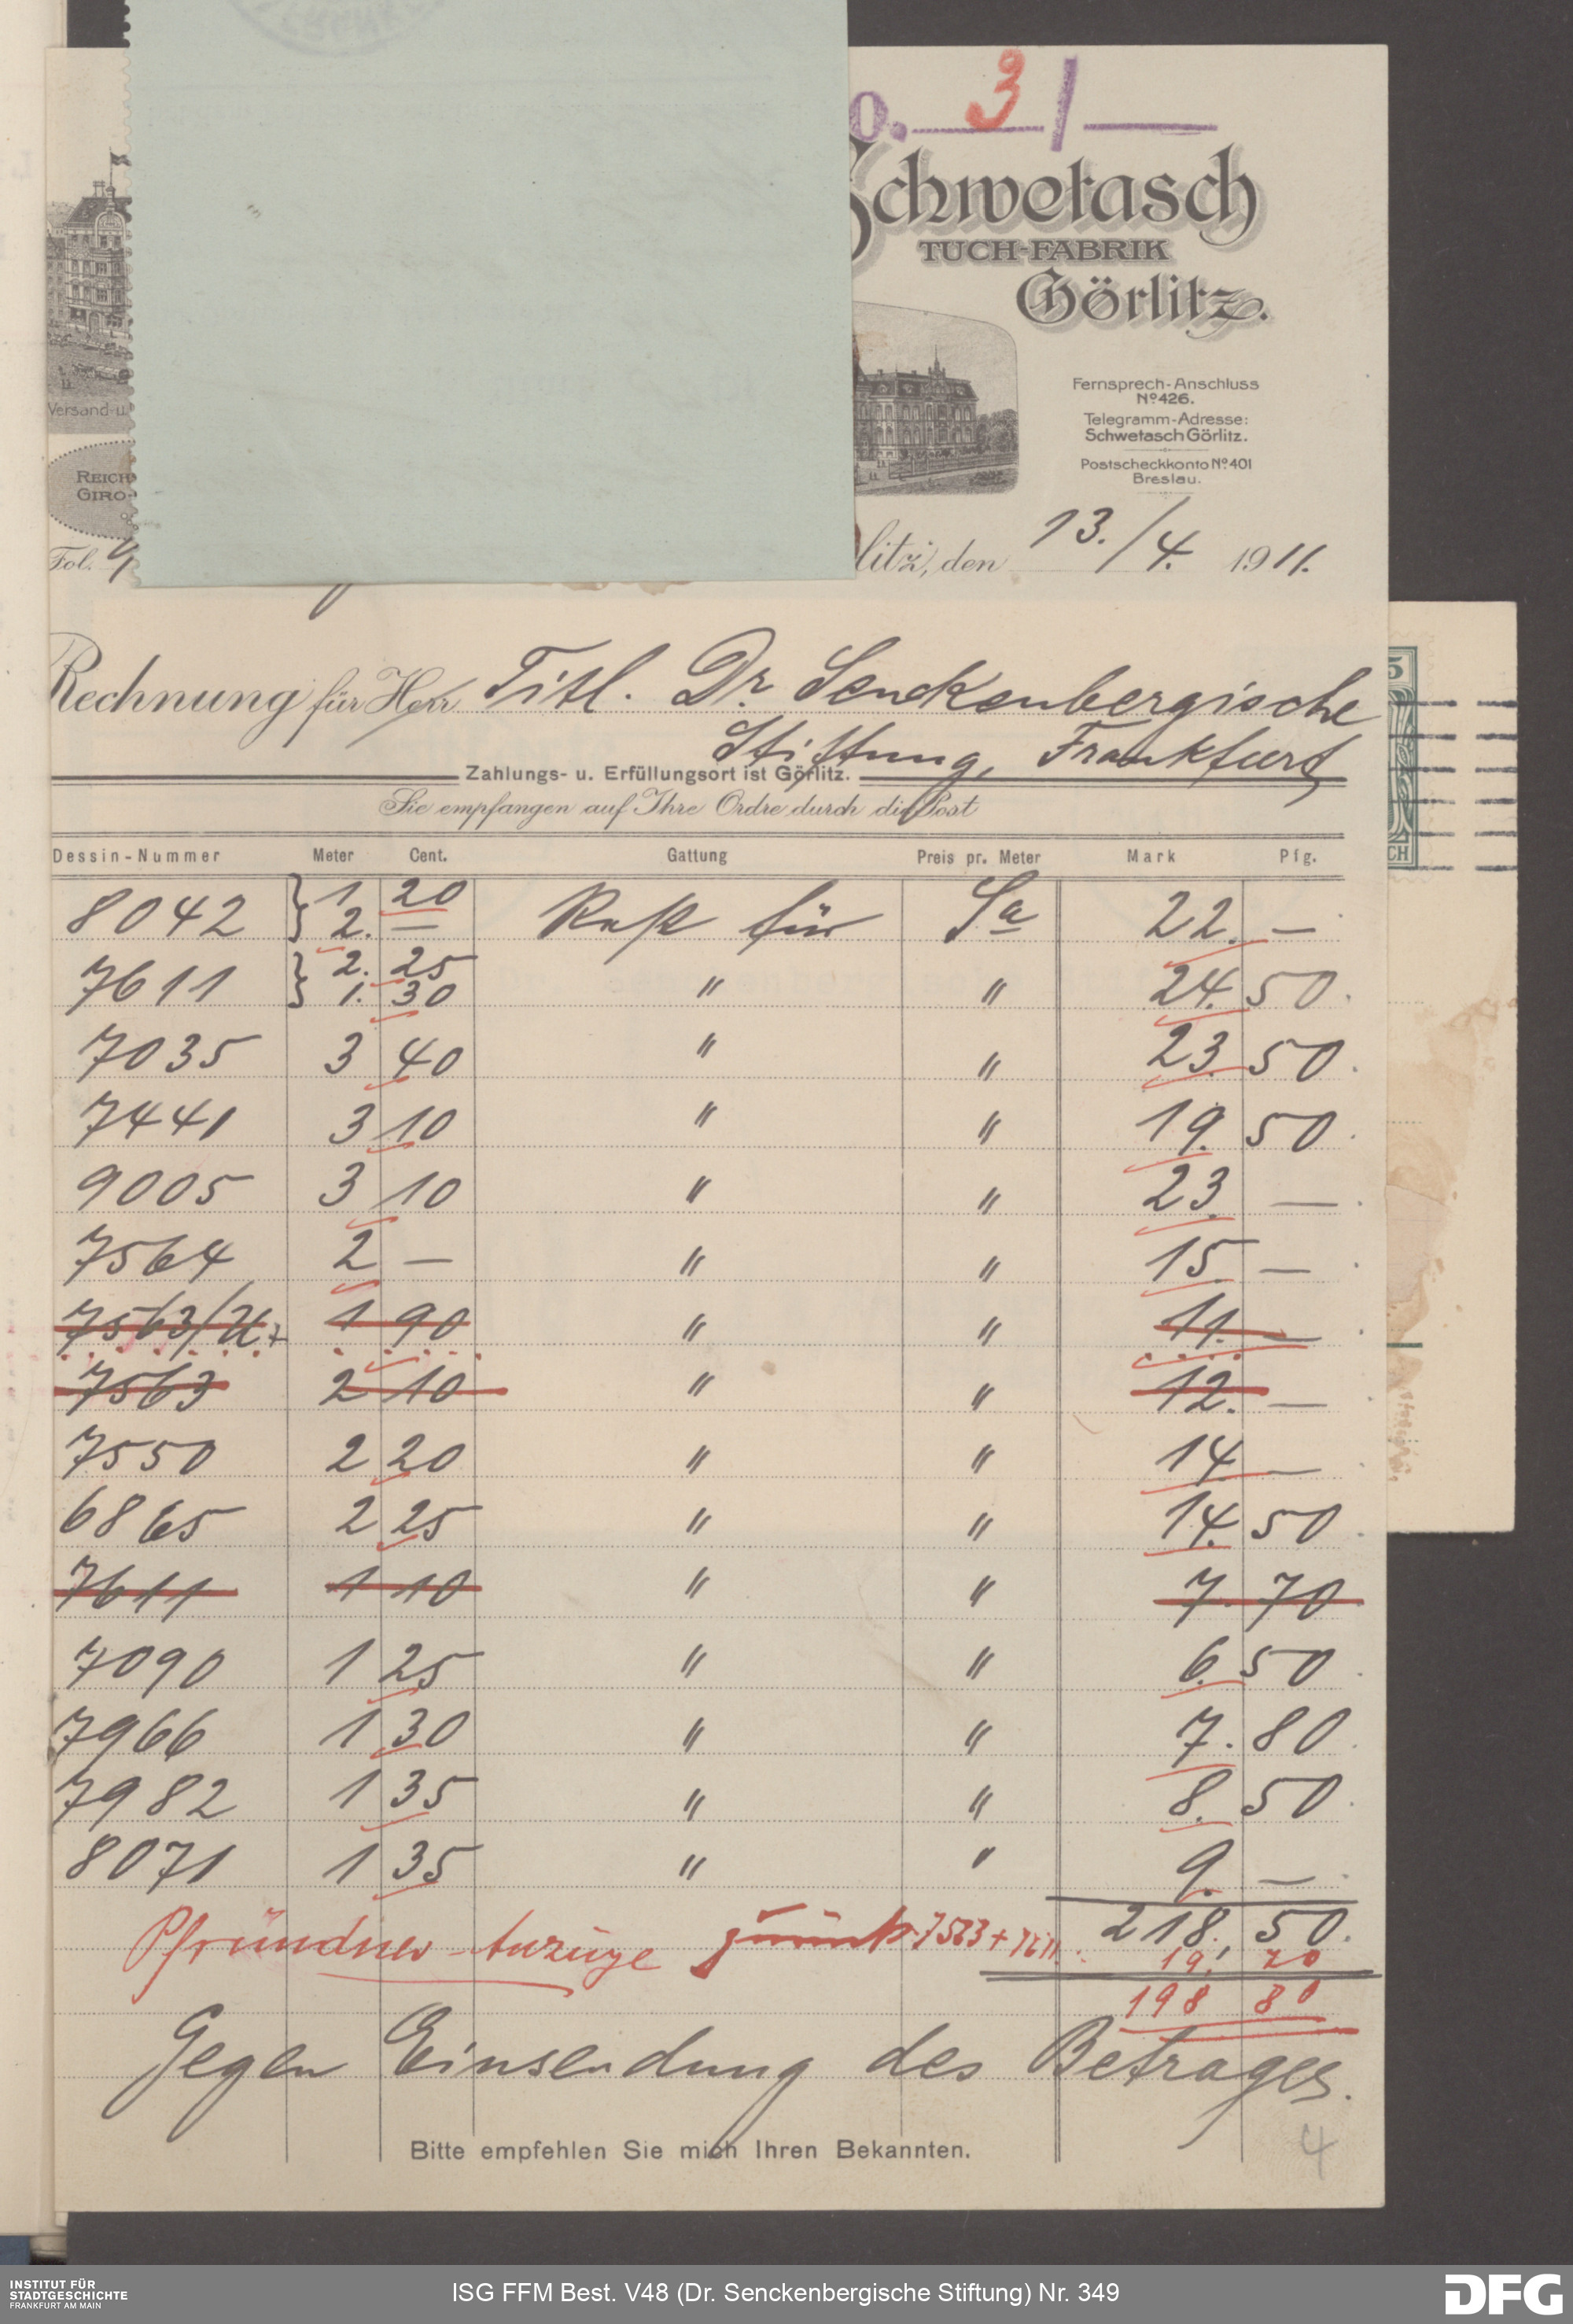 o. 31
Schwetasch
TUCH-FABRIK
Görlitz.
Fernsprech-Anschluss
Nº 426.
Telegramm-Adresse:
Schwetasch Görlitz.
Postscheckkonto Nº 401
Breslau.
Versand-u
REICH
GIRO-
Fol.
litz, den 13./4. 1911.
Rechnung für Herr Titl. Dr. Senckenbergische
Stiftung, Frankfurt
Zahlungs- u. Erfüllungsort ist Görlitz.
Sie empfangen auf Ihre Ordre durch die Post
Dessin-Nummer Meter Cent. Gattung Preis pr. Meter Mark Pfg.
8042 } 1. 20 Rest für Sa 22. —
2. —
7611 } 2. 25 " " 24. 50.
1. 30
7035 3 40 " " 23. 50.
7441 3 10 " " 19. 50.
9005 3 10 " " 23. —
7564 2 — " " 15. —
7563/ 1 90 " " 11. —
7563 2 10 " " 12. —
7550 2 20 " " 14 —
6865 2 25 " " 14. 50
7611 1 10 " " 7. 70
7090 1 25 " " 6. 50
7966 1 30 " " 7. 80
7982 1 35 " " 8. 50
8071 1 35 " " 9. —
218. 50.
Pfründner-Anzüge zurück 7563 + 7611. 19. 70
198 80
Gegen Einsendung des Betrages.
Bitte empfehlen Sie mich Ihren Bekannten.
4
5
CH
INSTITUT FÜR
STADTGESCHICHTE
FRANKFURT AM MAIN
ISG FFM Best. V48 (Dr. Senckenbergische Stiftung) Nr. 349
DFG